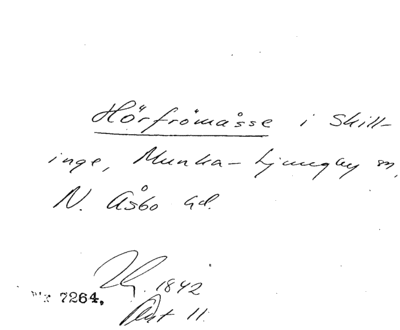 Hörfrömåsse i Skill-
inge, Munka-Ljungby sn,
N. Åsbo hd.
1842
7264.
Akt 11.